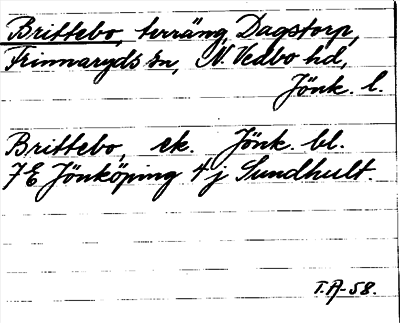 Brittebo, terräng, Dagstorp,
Frinnaryds sn, N. Vedbo hd,
Jönk. l.
Brittebo, ek. Jönk. bl.
7E Jönköping 4j Sundhult.
T.A-58.